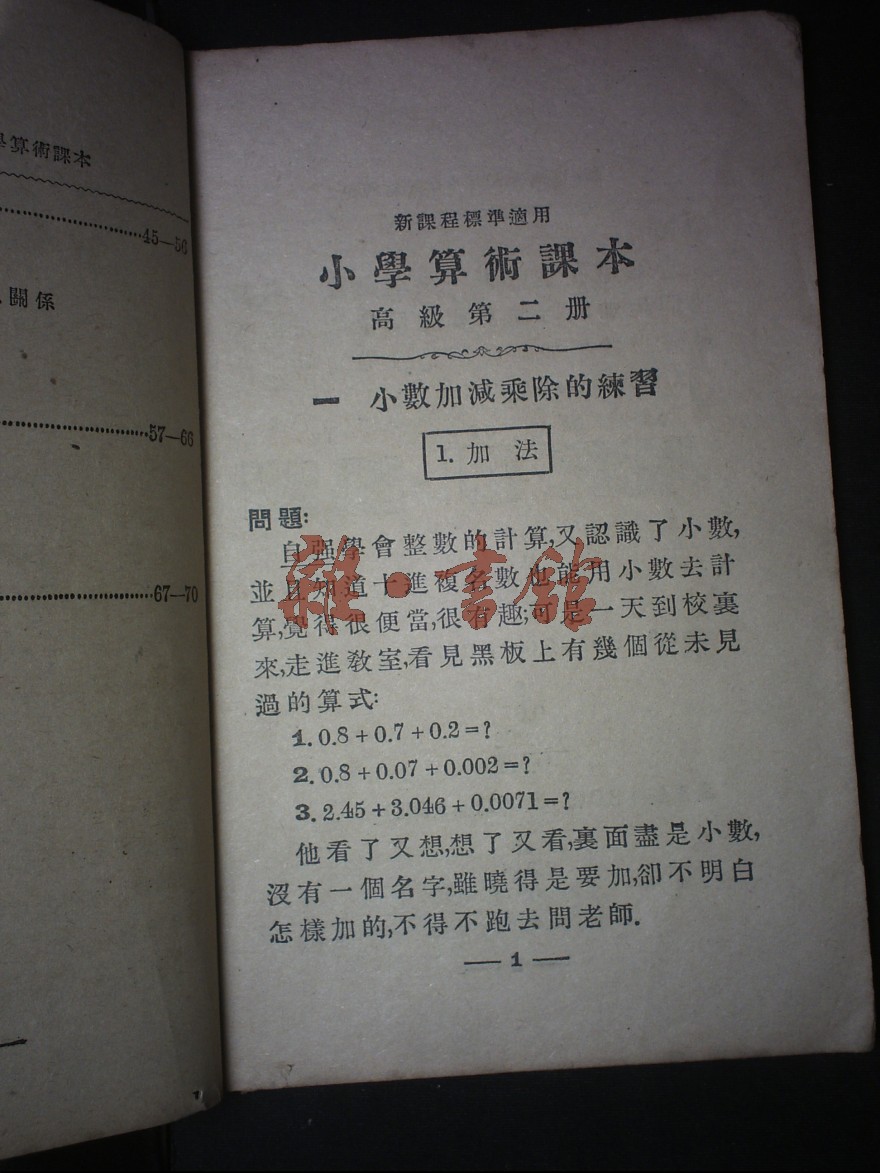 學算術課本
45—56
關係
57—66
67—70
新課程標準適用
小學算術課本
高級第二册
一 小數加減乘除的練習
1. 加法
問題:
自强學會整數的計算,又認識了小數,
並且知道十進複名數也能用小數去計
算,覺得很便當,很有趣;可是一天到校裏
來,走進教室,看見黑板上有幾個從未見
過的算式:
1. 0.8+0.7+0.2=?
2. 0.8+0.07+0.002=?
3. 2.45+3.046+0.0071=?
他看了又想,想了又看,裏面盡是小數,
沒有一個名字,雖曉得是要加,卻不明白
怎樣加的,不得不跑去問老師.
— 1 —
雜·書館